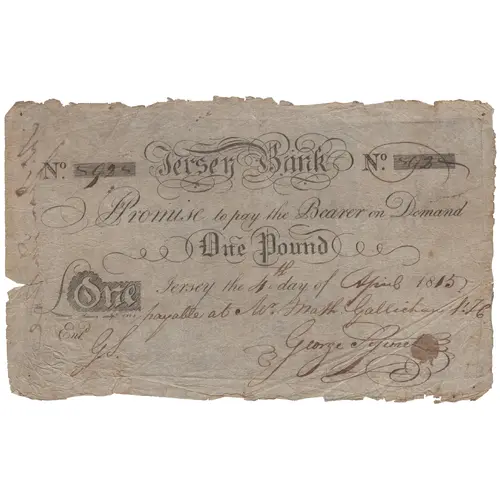 No. Jersey Bank No.
Promise to pay the Bearer on Demand
One Pound
Jersey the 4th day of April 1815
£One payable at Mr. Math Gallichan
Ent
GS George